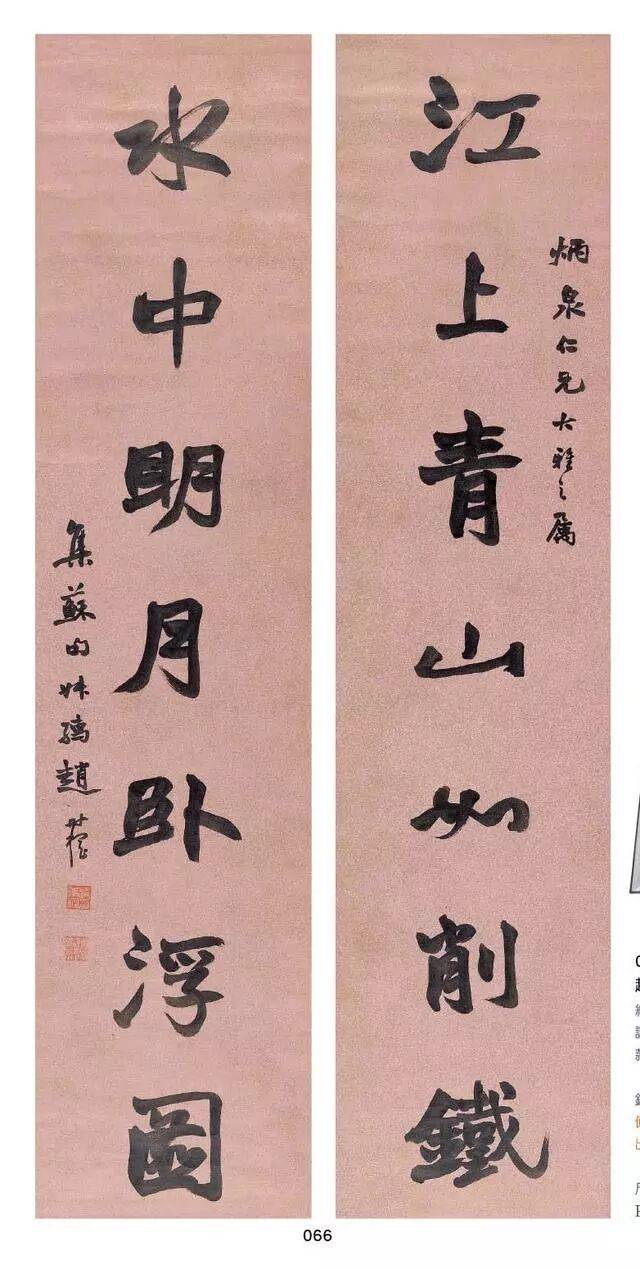 炳泉仁兄大雅之屬
江上青山如削鐵
水中明月卧浮圖
集蘇句叔孺趙時棡
066